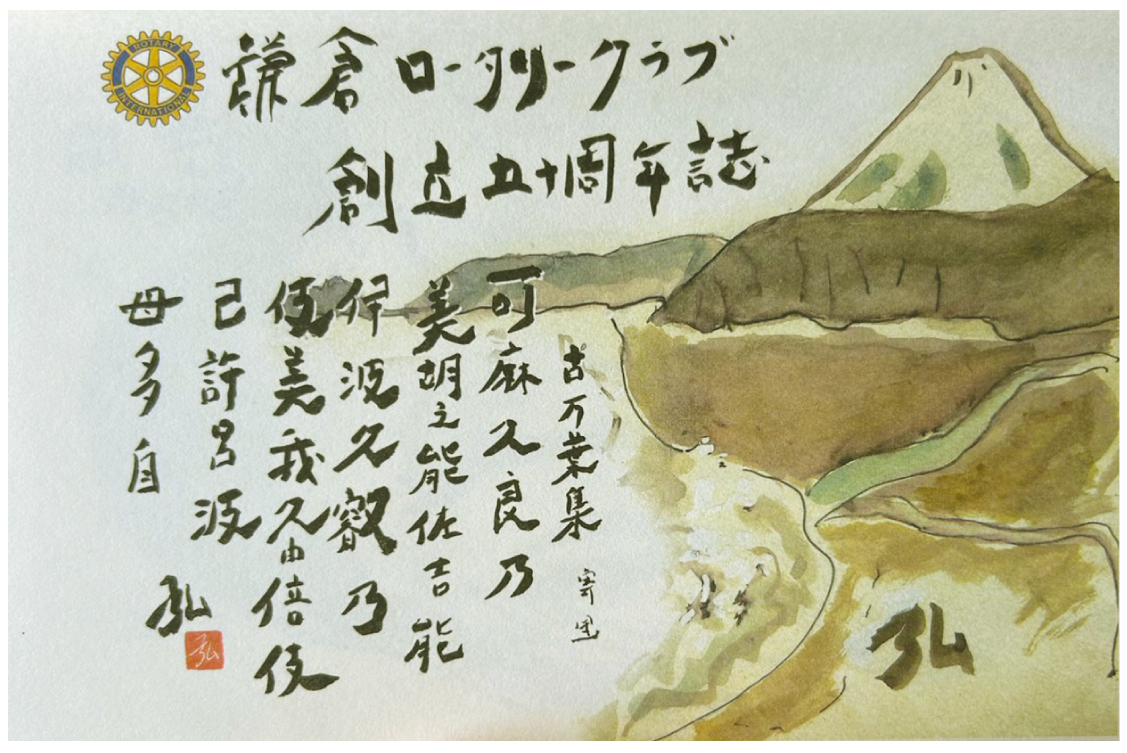 ROTARY
INTERNATIONAL
鎌倉ロータリークラブ
創立五十周年誌
古万葉集 寄
可麻久良乃
美胡之能佐吉能
伊波久叡乃
伎美我久由倍伎
己許呂波
母多自
弘
弘
弘